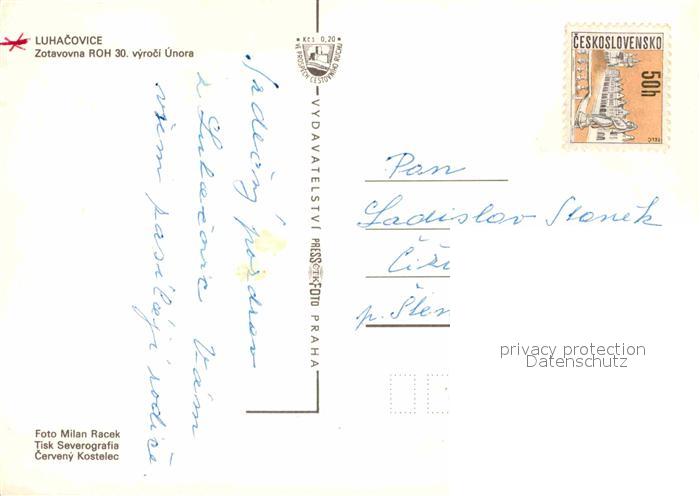 LUHAČOVICE
Zotavovna ROH 30. výročí Února
Srdečný pozdrav
z Luhačovic Vám
všem posílají rodiče.
Foto Milan Racek
Tisk Severografia
Červený Kostelec
Kčs 0,20
VE PROSPĚCH CESTOVNÍHO RUCHU
VYDAVATELSTVÍ PRESSFOTO PRAHA
ČTK
ČESKOSLOVENSKO
50h
TELČ
Pan
Ladislav Staněk
Čiž
p. Štěn
privacy protection
Datenschutz